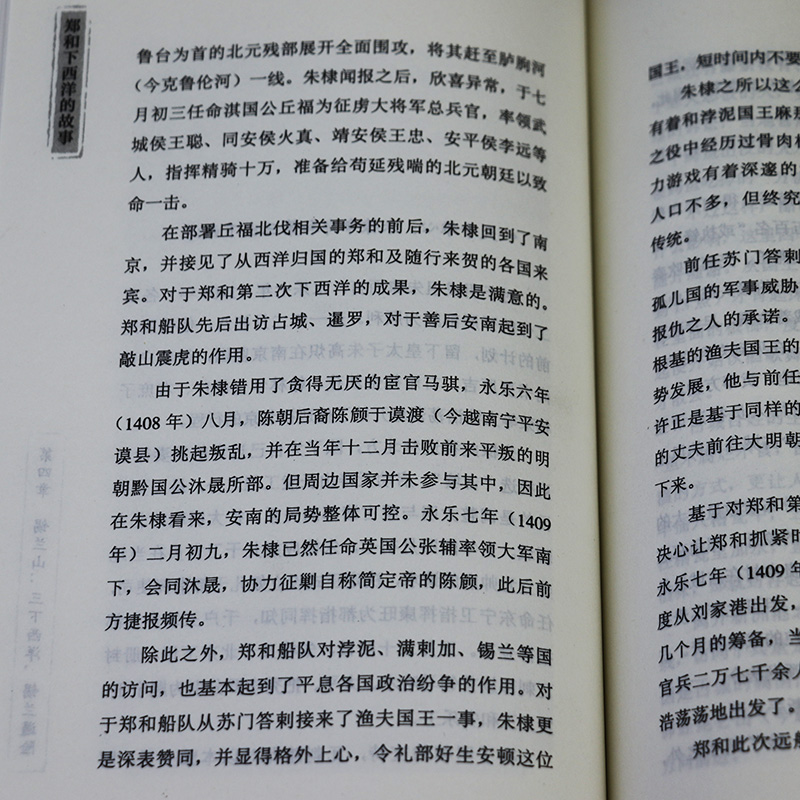 郑和下西洋的故事
鲁台为首的北元残部展开全面围攻，将其赶至胪朐河
（今克鲁伦河）一线。朱棣闻报之后，欣喜异常，于七
月初三任命淇国公丘福为征虏大将军总兵官，率领武
城侯王聪、同安侯火真、靖安侯王忠、安平侯李远等
人，指挥精骑十万，准备给苟延残喘的北元朝廷以致
命一击。
在部署丘福北伐相关事务的前后，朱棣回到了南
京，并接见了从西洋归国的郑和及随行来贺的各国来
宾。对于郑和第二次下西洋的成果，朱棣是满意的。
郑和船队先后出访占城、暹罗，对于善后安南起到了
敲山震虎的作用。
由于朱棣错用了贪得无厌的宦官马骐，永乐六年
（1408 年）八月，陈朝后裔陈頠于谟渡（今越南宁平安
谟县）挑起叛乱，并在当年十二月击败前来平叛的明
朝黔国公沐晟所部。但周边国家并未参与其中，因此
在朱棣看来，安南的局势整体可控。永乐七年（1409
年）二月初九，朱棣已然任命英国公张辅率领大军南
下，会同沐晟，协力征剿自称简定帝的陈頠，此后前
方捷报频传。
除此之外，郑和船队对浡泥、满剌加、锡兰等国
的访问，也基本起到了平息各国政治纷争的作用。对
于郑和船队从苏门答剌接来了渔夫国王一事，朱棣更
是深表赞同，并显得格外上心，令礼部好生安顿这位
国王，短时间内不要
朱棣之所以这么
有着和浡泥国王麻那
之役中经历过骨肉相
力游戏有着深邃的
人口不多，但终究
传统。
前任苏门答剌
孤儿国的军事威胁
报仇之人的承诺。
根基的渔夫国王的
势发展，他与前任
许正是基于同样的
的丈夫前往大明朝
下来。
基于对郑和第
决心让郑和抓紧时
永乐七年（1409 年
度从刘家港出发，
几个月的筹备，当
官兵二万七千余人
浩荡荡地出发了。
郑和此次远航